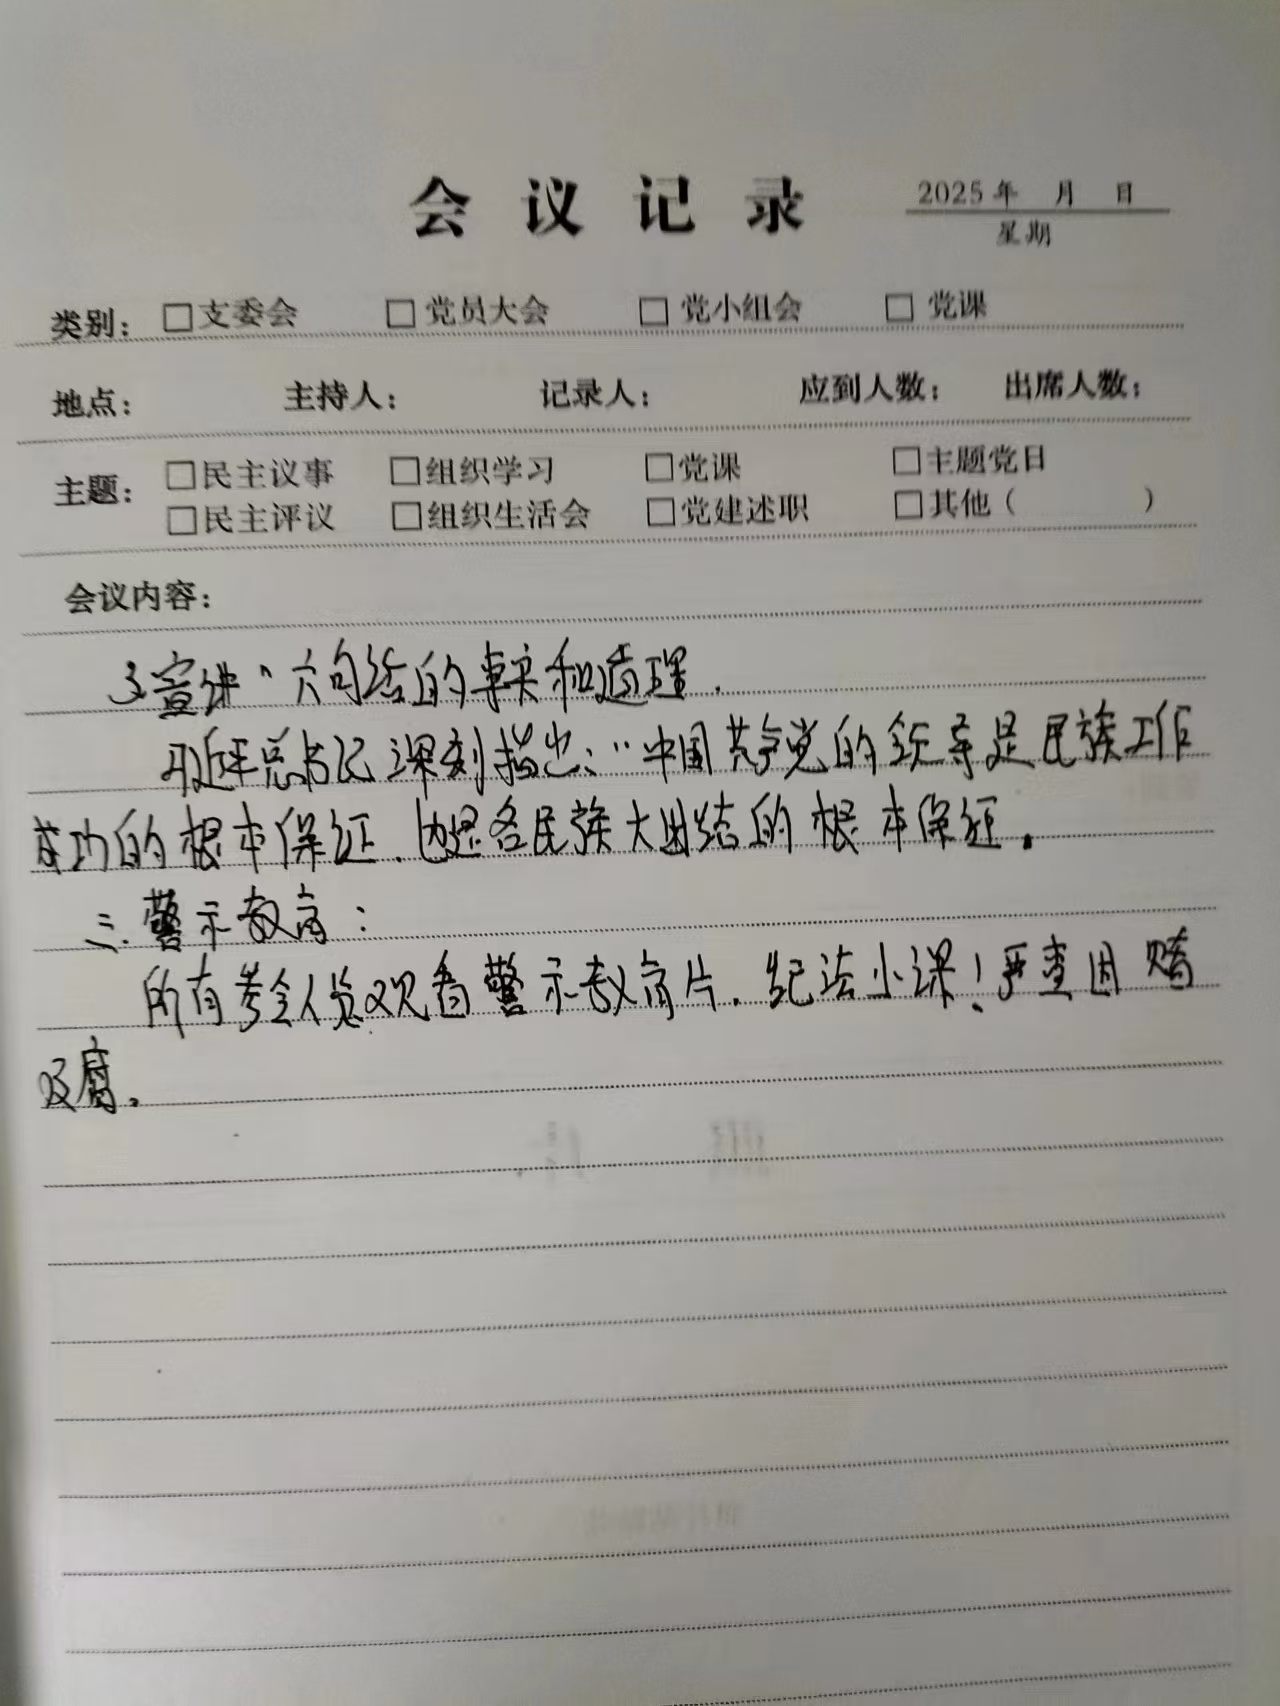 会议记录
2025年 月 日
星期
类别： □支委会 □党员大会 □党小组会 □党课
地点： 主持人： 记录人： 应到人数： 出席人数：
主题： □民主议事 □组织学习 □党课 □主题党日
□民主评议 □组织生活会 □党建述职 □其他（ ）
会议内容：
3.宣讲“六句话的事实和道理.
习近平总书记深刻指出：“中国共产党的领导是民族工作
成功的根本保证，也是各民族大团结的根本保证。
三.警示教育：
所有参会人员观看警示教育片，纪法小课！严查因赌
及腐。